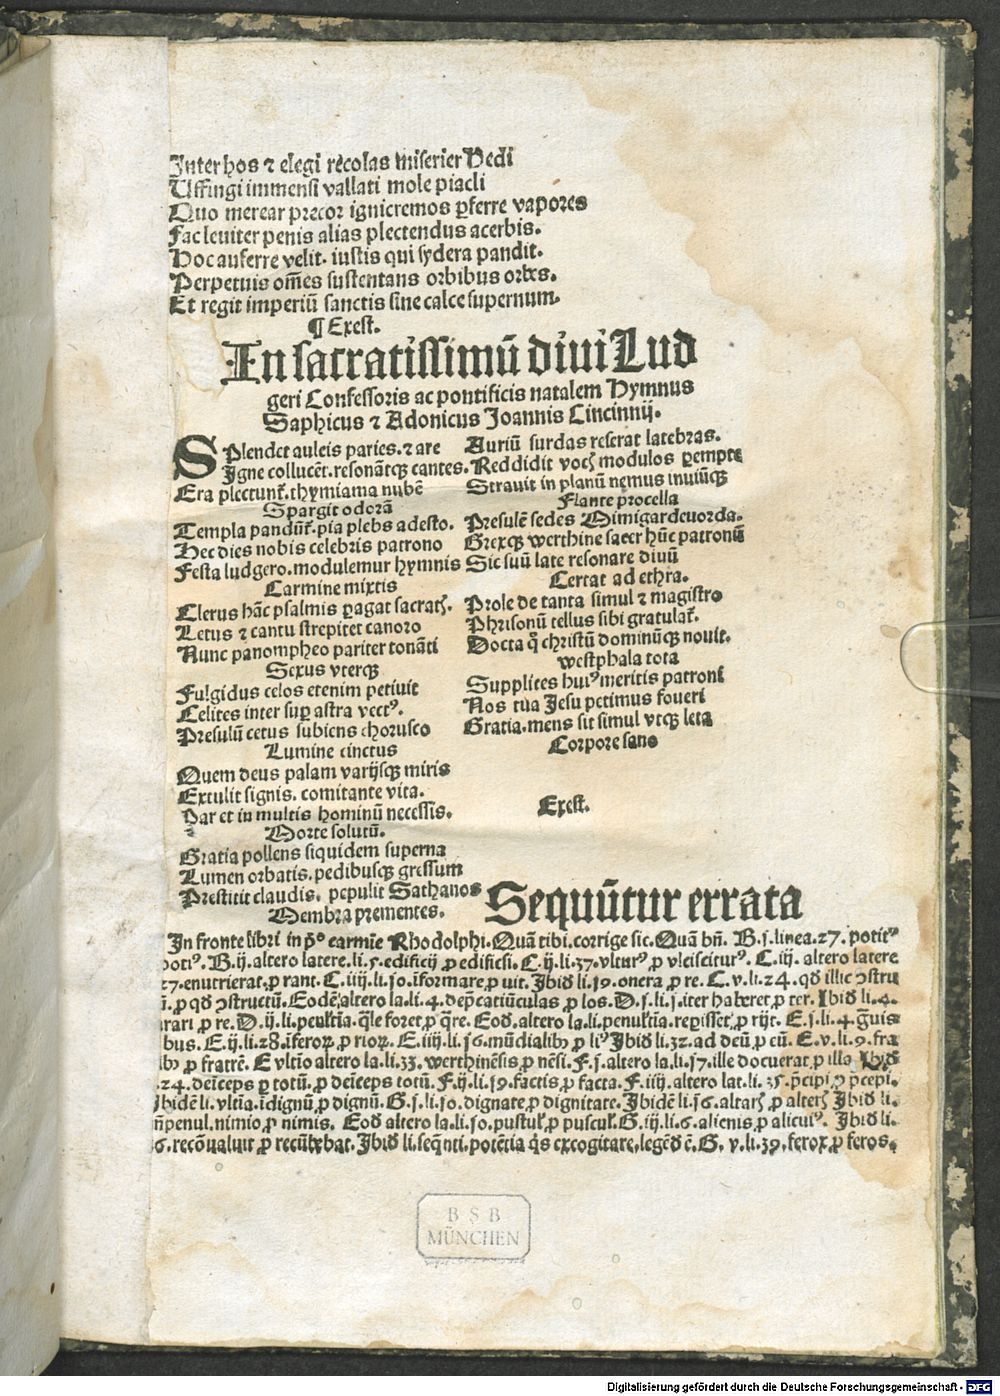 Inter hos ⁊ elegi recolas miserier Vedi
Uffingi immensi vallati mole piacli
Quo merear precor ignicremos ꝑferre vapores
Fac leuiter penis alias plectendus acerbis.
Hoc auferre velit. iustis qui sydera pandit.
Perpetuis om̄es sustentans orbibus orbes.
Et regit imperiū sanctis sine calce supernum.
¶ Exest.
In sacratissimū diui Lud
geri Confessoris ac pontificis natalem Hymnus
Saphicus ⁊ Adonicus Joannis Cincinnij.
SPlendet auleis paries. ⁊ are
Igne collucēt. resonātqꝫ cantes.
Era plectunt᷑. thymiama nubē
Spargit odorā
Templa pandūt᷑. pia plebs adesto.
Hec dies nobis celebris patrono
Festa ludgero. modulemur hymnis
Carmine mixtis
Clerus hāc psalmis ꝑagat sacratꝫ.
Letus ⁊ cantu strepitet canoro
Nunc panompheo pariter tonāti
Sexus vterqꝫ
Fulgidus celos etenim petiuit
Celites inter suꝑ astra vectꝰ.
Presulū cetus subiens chorusco
Lumine cinctus
Quem deus palam varijsqꝫ miris
Extulit signis. comitante vita.
Par et in multis hominū necessis.
Morte solutū.
Gratia pollens siquidem superna
Lumen orbatis. pedibusqꝫ gressum
Prestitit claudis. pepulit Sathanos
Membra prementes.
Auriū surdas reserat latebras.
Reddidit vocꝫ modulos ꝑempte
Strauit in planū nemus inuiūqꝫ
Flante procella
Presulē sedes Mimigardeuorda.
Grexqꝫ werthine sacer hūc patronū
Sic suū late resonare diuū
Certat ad ethra.
Prole de tanta simul ⁊ magistro
Phrisonū tellus sibi gratulat᷑.
Docta ꝙ christū dominūqꝫ nouit.
westphala tota
Supplices huiꝰ meritis patroni
Nos tua Jesu petimus foueri
Gratia. mens sit simul vtqꝫ leta
Corpore sano
Exest.
Sequūtur errata
In fronte libri in pͦ carmīe Rhodolphi. Quā tibi. corrige sic. Quā bn̄. B. j. linea. 27. potitꝰ
potiꝰ. B. ij. altero latere. li. 5. edificij ꝓ edificsi. C. ij. li. 37. vlturꝰ ꝓ vlcisciturꝰ. C. iij. altero latere
27. enutrierat. ꝓ rant. C. iiij. li. 10. īformare ꝓ uit. Ibid̄ li. 19. onera ꝓ re. C. v. li. 24. qd̄ illic ↄstru
ꝓ qd̄ ↄstructū. Eodē altero la. li. 4. dep̄catiūculas ꝓ los. D. j. li. j. iter haberet ꝓ ter. Ibid̄ li. 4.
rari ꝓ re. D. ij. li. penl̄tīa. q̄le foret ꝓ q̄re. Eod̄. altero la. li. penl̄tīa. rep̄isset ꝓ rijt. E. j. li. 4. ḡuis
bus. E. ij. li. 28. īferoꝝ ꝓ rioꝝ. E. iiij. li. 16. mūdialibꝫ ꝓ liꝰ Ibid̄ li. 32. ad deū ꝓ cū. E. v. li. 9. fra
ꝓ fratrē. E vltīo altero la. li. 33. werthinēsis ꝓ nēsi. F. j. altero la. li. 17. ille docuerat ꝓ illa Ibid̄
24. deīceps ꝑ totū. ꝓ deīceps totū. F. ij. li. 19. factis ꝓ facta. F. iiij. altero lat. li. 35. p̄cipi ꝓ p̄cepi.
Ibidē li. vltīa. īdignū ꝓ dignū. G. j. li. 10. dignate ꝓ dignitate. Ibidē li. 16. altarꝫ ꝓ alterꝫ Ibid̄ li.
penul. nimio ꝓ nimis. Eod̄ altero la. li. 10. pustul̄ ꝓ puscul̄. G. iij. li. 6. alienis ꝓ alicuiꝰ. Ibid̄ li.
6. recōualuit ꝓ recūbebat. Ibid̄ li. seq̄nti. potētia q̄s excogitare. legēd̄ ē. G. v. li. 39. ferox ꝓ feros.
B S B
MÜNCHEN
Digitalisierung gefördert durch die Deutsche Forschungsgemeinschaft - DFG